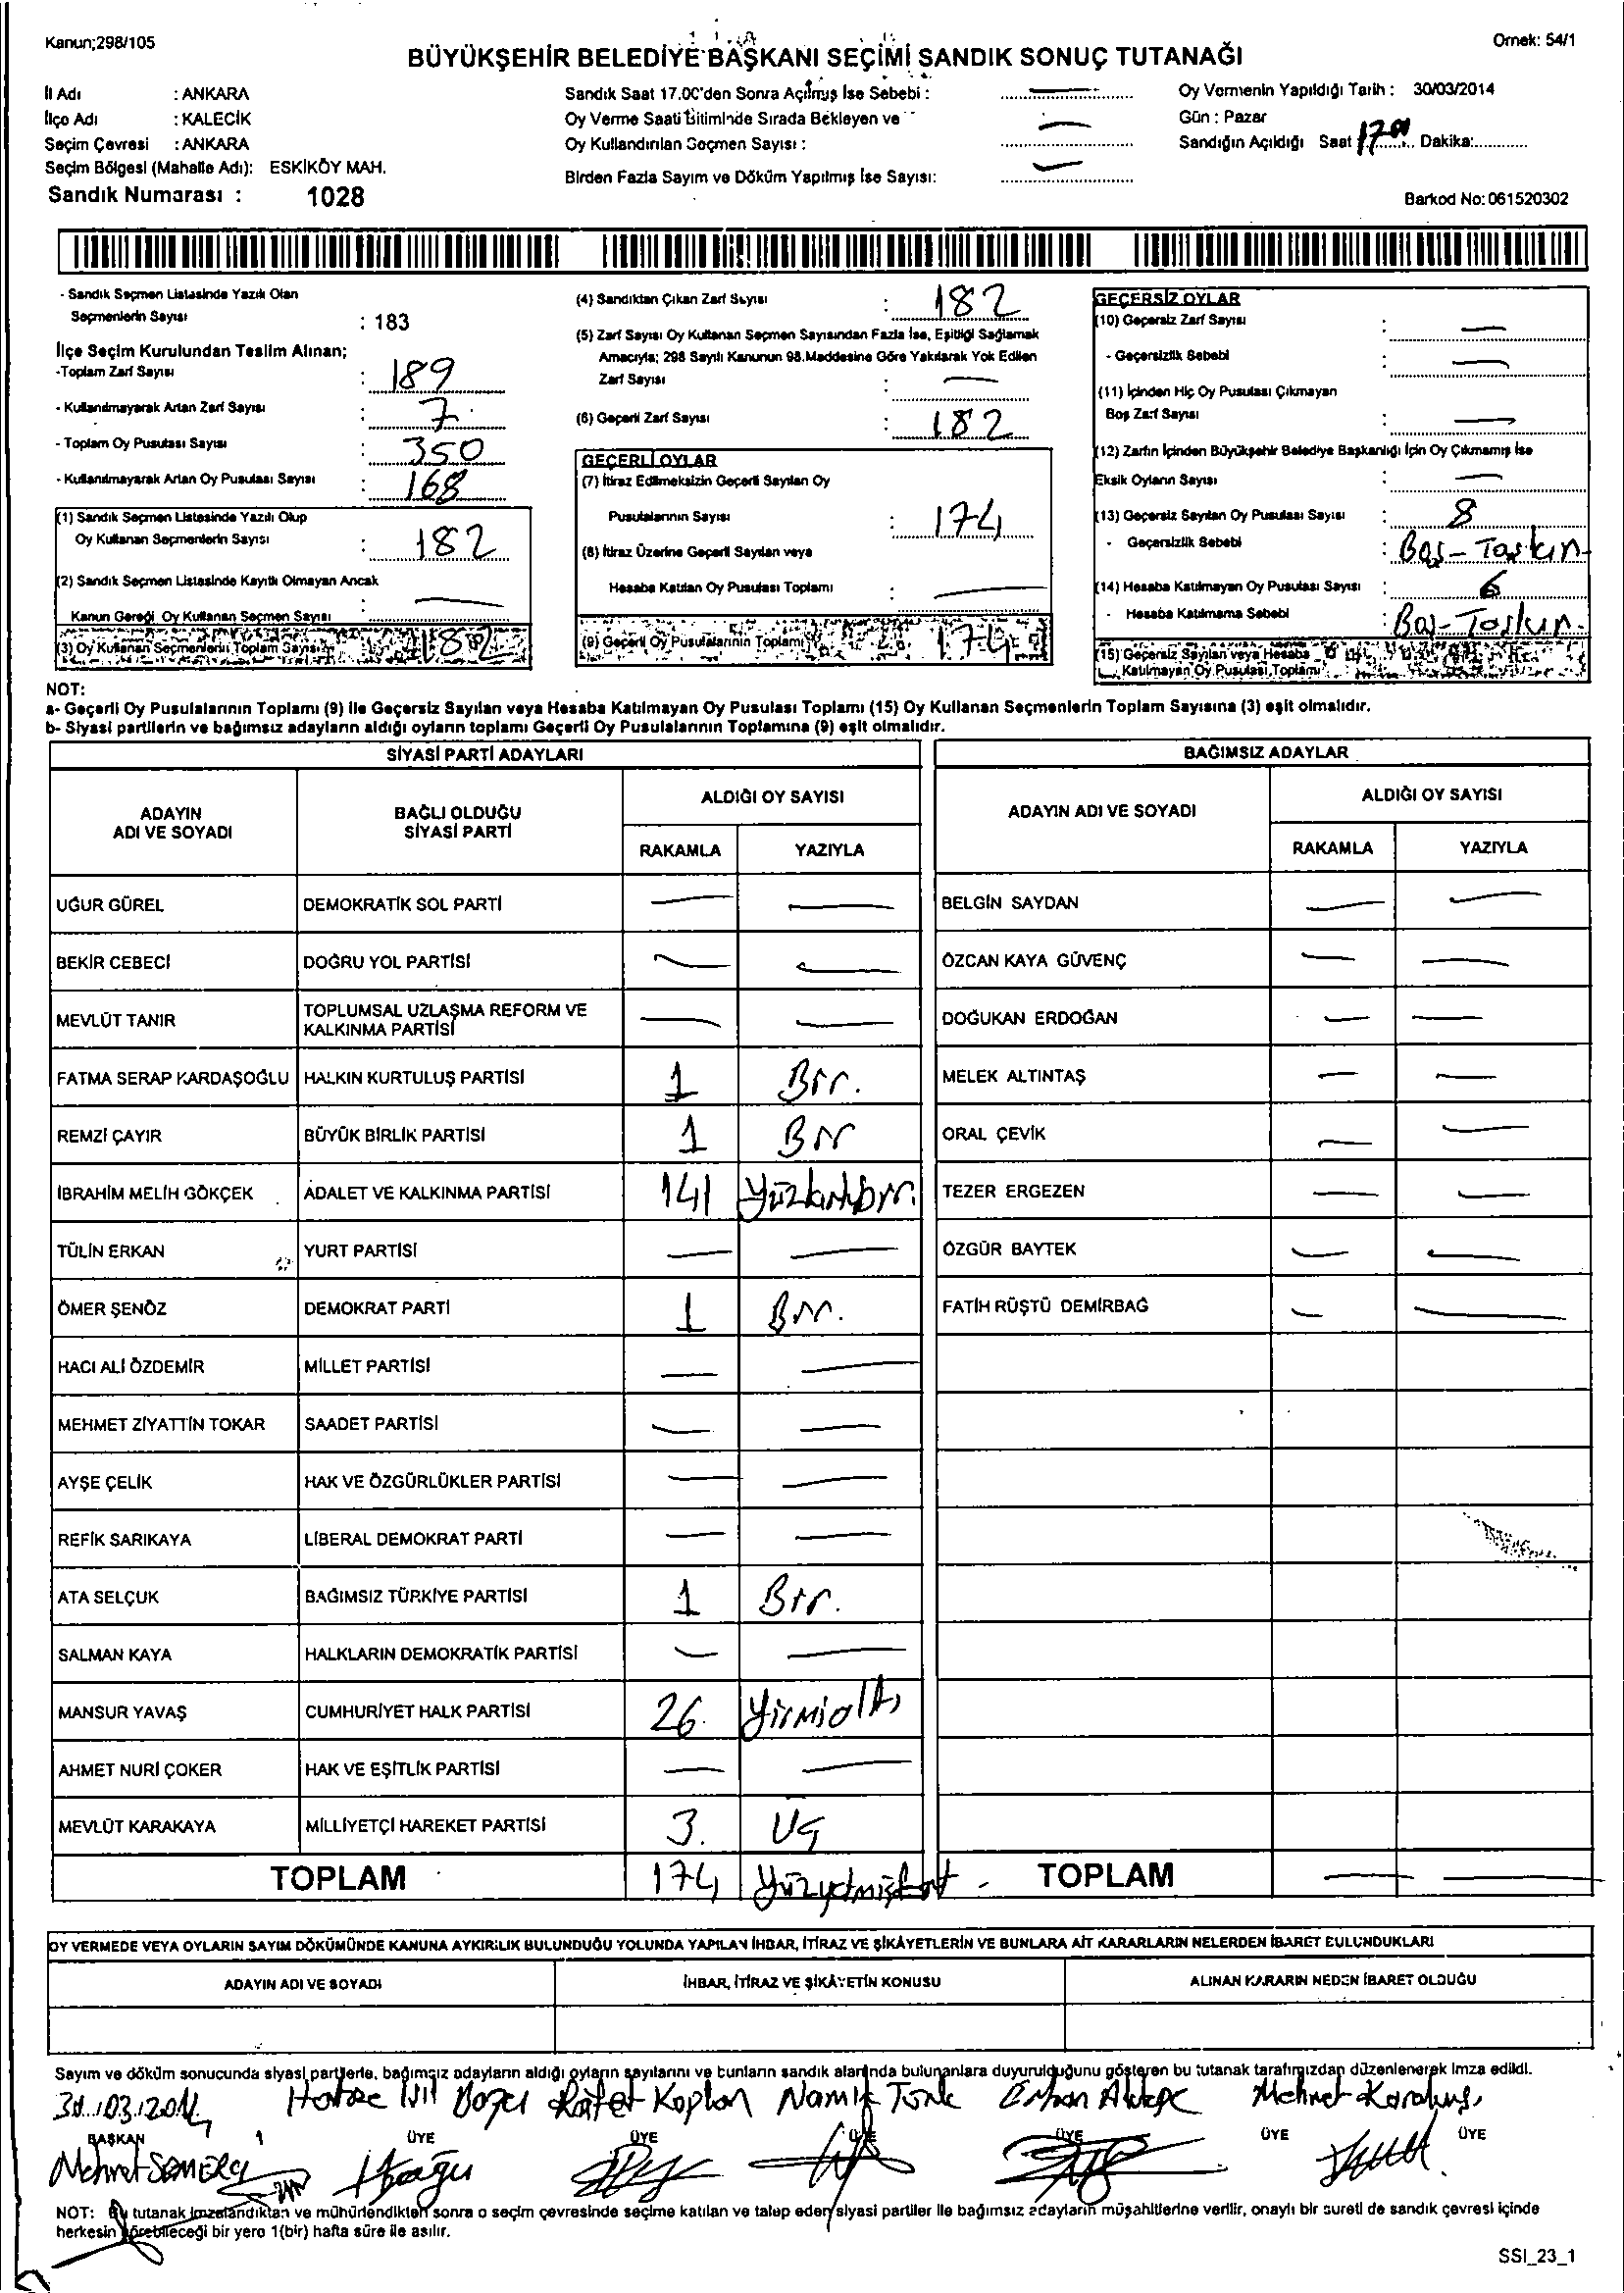 Kanun;298/105
Örnek: 54/1
BÜYÜKŞEHİR BELEDİYE BAŞKANI SEÇİMİ SANDIK SONUÇ TUTANAĞI
İl Adı : ANKARA
İlçe Adı : KALECİK
Seçim Çevresi : ANKARA
Seçim Bölgesi (Mahalle Adı): ESKİKÖY MAH.
Sandık Numarası : 1028
Sandık Saat 17.00'den Sonra Açılmış İse Sebebi : —
Oy Verme Saati Bitiminde Sırada Bekleyen ve
Oy Kullandırılan Seçmen Sayısı : —
Birden Fazla Sayım ve Döküm Yapılmış İse Sayısı: —
Oy Vermenin Yapıldığı Tarih : 30/03/2014
Gün : Pazar
Sandığın Açıldığı Saat 17.00 Dakika:
Barkod No: 061520302
- Sandık Seçmen Listesinde Yazılı Olan
Seçmenlerin Sayısı : 183
İlçe Seçim Kurulundan Teslim Alınan;
-Toplam Zarf Sayısı : 189
- Kullanılmayarak Artan Zarf Sayısı : 7
- Toplam Oy Pusulası Sayısı : 350
- Kullanılmayarak Artan Oy Pusulası Sayısı : 168
(1) Sandık Seçmen Listesinde Yazılı Olup
Oy Kullanan Seçmenlerin Sayısı : 182
(2) Sandık Seçmen Listesinde Kayıtlı Olmayan Ancak
Kanun Gereği Oy Kullanan Seçmen Sayısı : —
(3) Oy Kullanan Seçmenlerin Toplam Sayısı 182
(4) Sandıktan Çıkan Zarf Sayısı : 182
(5) Zarf Sayısı Oy Kullanan Seçmen Sayısından Fazla İse, Eşitliği Sağlamak
Amacıyla; 298 Sayılı Kanunun 98.Maddesine Göre Yakılarak Yok Edilen
Zarf Sayısı : —
(6) Geçerli Zarf Sayısı : 182
GEÇERLİ OYLAR
(7) İtiraz Edilmeksizin Geçerli Sayılan Oy
Pusulalarının Sayısı : 174
(8) İtiraz Üzerine Geçerli Sayılan veya
Hesaba Katılan Oy Pusulası Toplamı : —
(9) Geçerli Oy Pusulalarının Toplamı 174
GEÇERSİZ OYLAR
(10) Geçersiz Zarf Sayısı : —
- Geçersizlik Sebebi : —
(11) İçinden Hiç Oy Pusulası Çıkmayan
Boş Zarf Sayısı : —
(12) Zarfın İçinden Büyükşehir Belediye Başkanlığı İçin Oy Çıkmamış İse
Eksik Oyların Sayısı : —
(13) Geçersiz Sayılan Oy Pusulası Sayısı : 8
- Geçersizlik Sebebi : Boş-Taşkın-
(14) Hesaba Katılmayan Oy Pusulası Sayısı : 6
- Hesaba Katılmama Sebebi : Boş-Taşkın.
(15) Geçersiz Sayılan veya Hesaba
Katılmayan Oy Pusulası Toplamı
NOT:
a- Geçerli Oy Pusulalarının Toplamı (9) ile Geçersiz Sayılan veya Hesaba Katılmayan Oy Pusulası Toplamı (15) Oy Kullanan Seçmenlerin Toplam Sayısına (3) eşit olmalıdır.
b- Siyasi partilerin ve bağımsız adayların aldığı oyların toplamı Geçerli Oy Pusulalarının Toplamına (9) eşit olmalıdır.
SİYASİ PARTİ ADAYLARI
ADAYIN ADI VE SOYADI
BAĞLI OLDUĞU SİYASİ PARTİ
ALDIĞI OY SAYISI
RAKAMLA YAZIYLA
UĞUR GÜREL DEMOKRATİK SOL PARTİ — —
BEKİR CEBECİ DOĞRU YOL PARTİSİ — —
MEVLÜT TANIR TOPLUMSAL UZLAŞMA REFORM VE KALKINMA PARTİSİ — —
FATMA SERAP KARDAŞOĞLU HALKIN KURTULUŞ PARTİSİ 1 Bir.
REMZİ ÇAYIR BÜYÜK BİRLİK PARTİSİ 1 Bir
İBRAHİM MELİH GÖKÇEK ADALET VE KALKINMA PARTİSİ 141 Yüzkırkbir.
TÜLİN ERKAN YURT PARTİSİ — —
ÖMER ŞENÖZ DEMOKRAT PARTİ 1 Bir.
HACI ALİ ÖZDEMİR MİLLET PARTİSİ — —
MEHMET ZİYATTİN TOKAR SAADET PARTİSİ — —
AYŞE ÇELİK HAK VE ÖZGÜRLÜKLER PARTİSİ — —
REFİK SARIKAYA LİBERAL DEMOKRAT PARTİ — —
ATA SELÇUK BAĞIMSIZ TÜRKİYE PARTİSİ 1 Bir.
SALMAN KAYA HALKLARIN DEMOKRATİK PARTİSİ — —
MANSUR YAVAŞ CUMHURİYET HALK PARTİSİ 26. Yirmialtı
AHMET NURİ ÇOKER HAK VE EŞİTLİK PARTİSİ — —
MEVLÜT KARAKAYA MİLLİYETÇİ HAREKET PARTİSİ 3. Üç
TOPLAM 174 Yüzyetmişdört -
BAĞIMSIZ ADAYLAR
ADAYIN ADI VE SOYADI
ALDIĞI OY SAYISI
RAKAMLA YAZIYLA
BELGİN SAYDAN — —
ÖZCAN KAYA GÜVENÇ — —
DOĞUKAN ERDOĞAN — —
MELEK ALTINTAŞ — —
ORAL ÇEVİK — —
TEZER ERGEZEN — —
ÖZGÜR BAYTEK — —
FATİH RÜŞTÜ DEMİRBAĞ — —
TOPLAM — —
OY VERMEDE VEYA OYLARIN SAYIM DÖKÜMÜNDE KANUNA AYKIRILIK BULUNDUĞU YOLUNDA YAPILAN İHBAR, İTİRAZ VE ŞİKÂYETLERİN VE BUNLARA AİT KARARLARIN NELERDEN İBARET BULUNDUKLARI
ADAYIN ADI VE SOYADI
İHBAR, İTİRAZ VE ŞİKÂYETİN KONUSU
ALINAN KARARIN NEDEN İBARET OLDUĞU
Sayım ve döküm sonucunda siyasi partilerle, bağımsız adayların aldığı oyların sayılarını ve bunların sandık alanında bulunanlara duyurulduğunu gösteren bu tutanak tarafımızdan düzenlenerek imza edildi.
30.03.2014 Rafet Kaplan Namık Erhan Mehmet
BAŞKAN ÜYE ÜYE ÜYE ÜYE ÜYE ÜYE
Mehmet SEMERCİ
NOT: Bu tutanak imzalandıktan ve mühürlendikten sonra o seçim çevresinde seçime katılan ve talep eden siyasi partiler ile bağımsız adayların müşahitlerine verilir, onaylı bir sureti de sandık çevresi içinde
herkesin görebileceği bir yere 1(bir) hafta süre ile asılır.
SSI_23_1